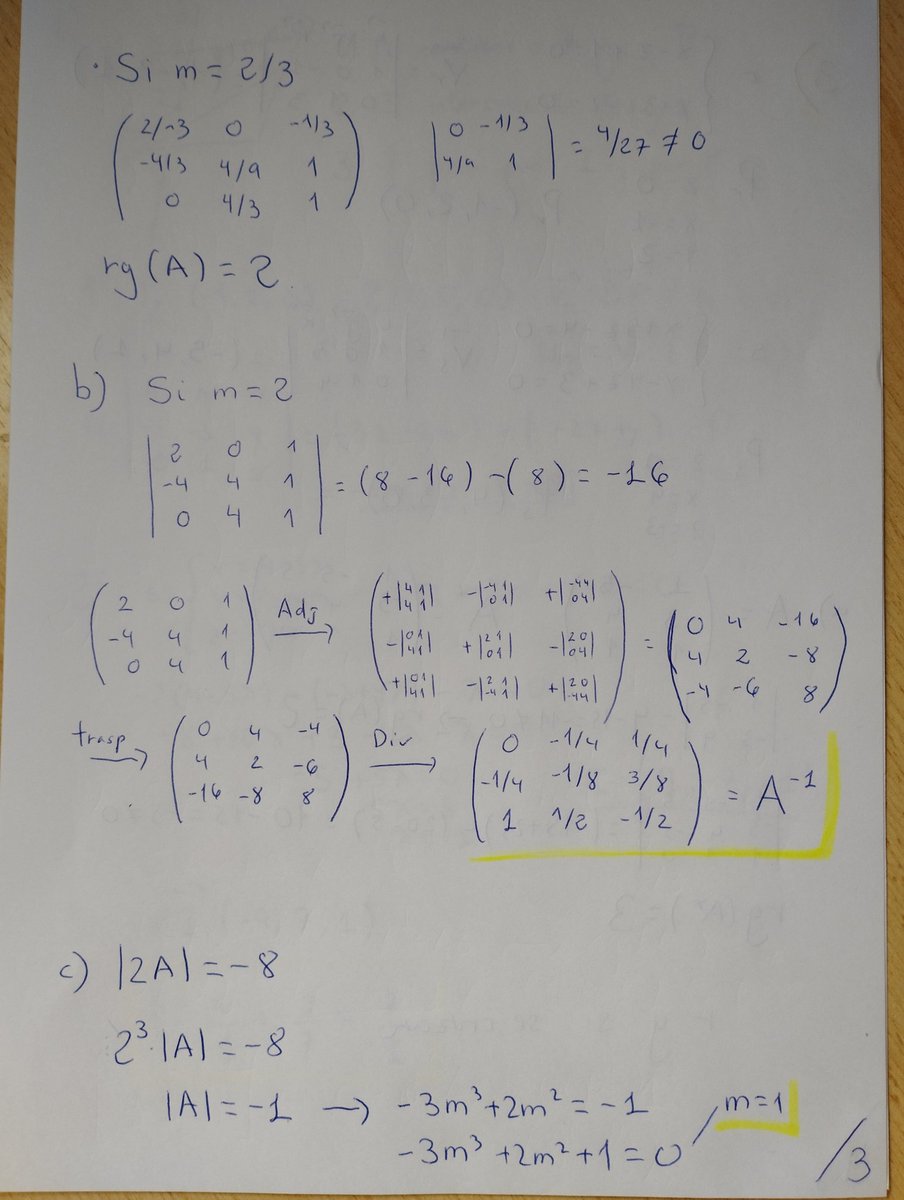 · Si m = 2/3
( 2/3 0 -1/3 ; -4/3 4/9 1 ; 0 4/3 1 ) | 0 -1/3 ; 4/9 1 | = 4/27 ≠ 0
rg(A) = 2
b) Si m = 2
| 2 0 1 ; -4 4 1 ; 0 4 1 | = (8 - 16) - (8) = -16
( 2 0 1 ; -4 4 1 ; 0 4 1 ) Adj → ( +|4 1 ; 4 1| -|-4 1 ; 0 1| +|-4 4 ; 0 4| ; -|0 1 ; 4 1| +|2 1 ; 0 1| -|2 0 ; 0 4| ; +|0 1 ; 4 1| -|2 1 ; -4 1| +|2 0 ; -4 4| ) = ( 0 4 -16 ; 4 2 -8 ; -4 -6 8 )
trasp → ( 0 4 -4 ; 4 2 -6 ; -16 -8 8 ) Div → ( 0 -1/4 1/4 ; -1/4 -1/8 3/8 ; 1 1/2 -1/2 ) = A⁻¹
c) |2A| = -8
2³·|A| = -8
|A| = -1 → -3m³ + 2m² = -1
-3m³ + 2m² + 1 = 0 / m = 1
/3